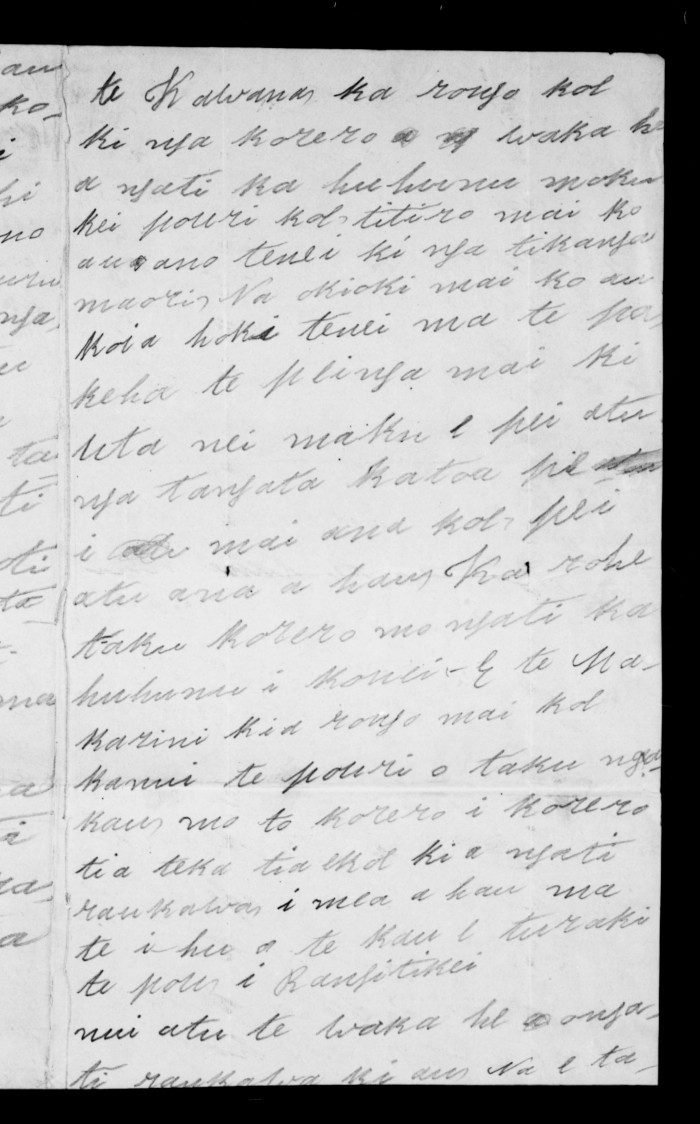 au
ko-
i
hi
no
uru
nga,
u
ta
ti
oti
ta
ma
a
ta
ga,
a
te Kawana, ka rongo koe
ki nga korero a ng waka he
a ngati ka huhunu moku
kei pouri koe, titiro mai ko
au, ano tenei ki nga tikanga
maori, Na okioki mai ko au
Koia hoki tenei ma te pa,
keha te peinga mai ki
uta nei maku e pei atu
nga tangata katoa pei
i mai ana koe, pei
atu ana a hau, Ka rohe
taku korero mo ngati ka
huhunu i konei - E te Ma-
karini kia rongo mai koe
kanui te pouri o taku nga-
kau, mo to korero i korero
tia teka tia e koe ki a ngati
raukawa, i mea a hau ma
te i hu a te kau e turaki
te pou, i Rangitikei
nui atu te waka he o nga-
ti raukawa ki au, Na e ta-